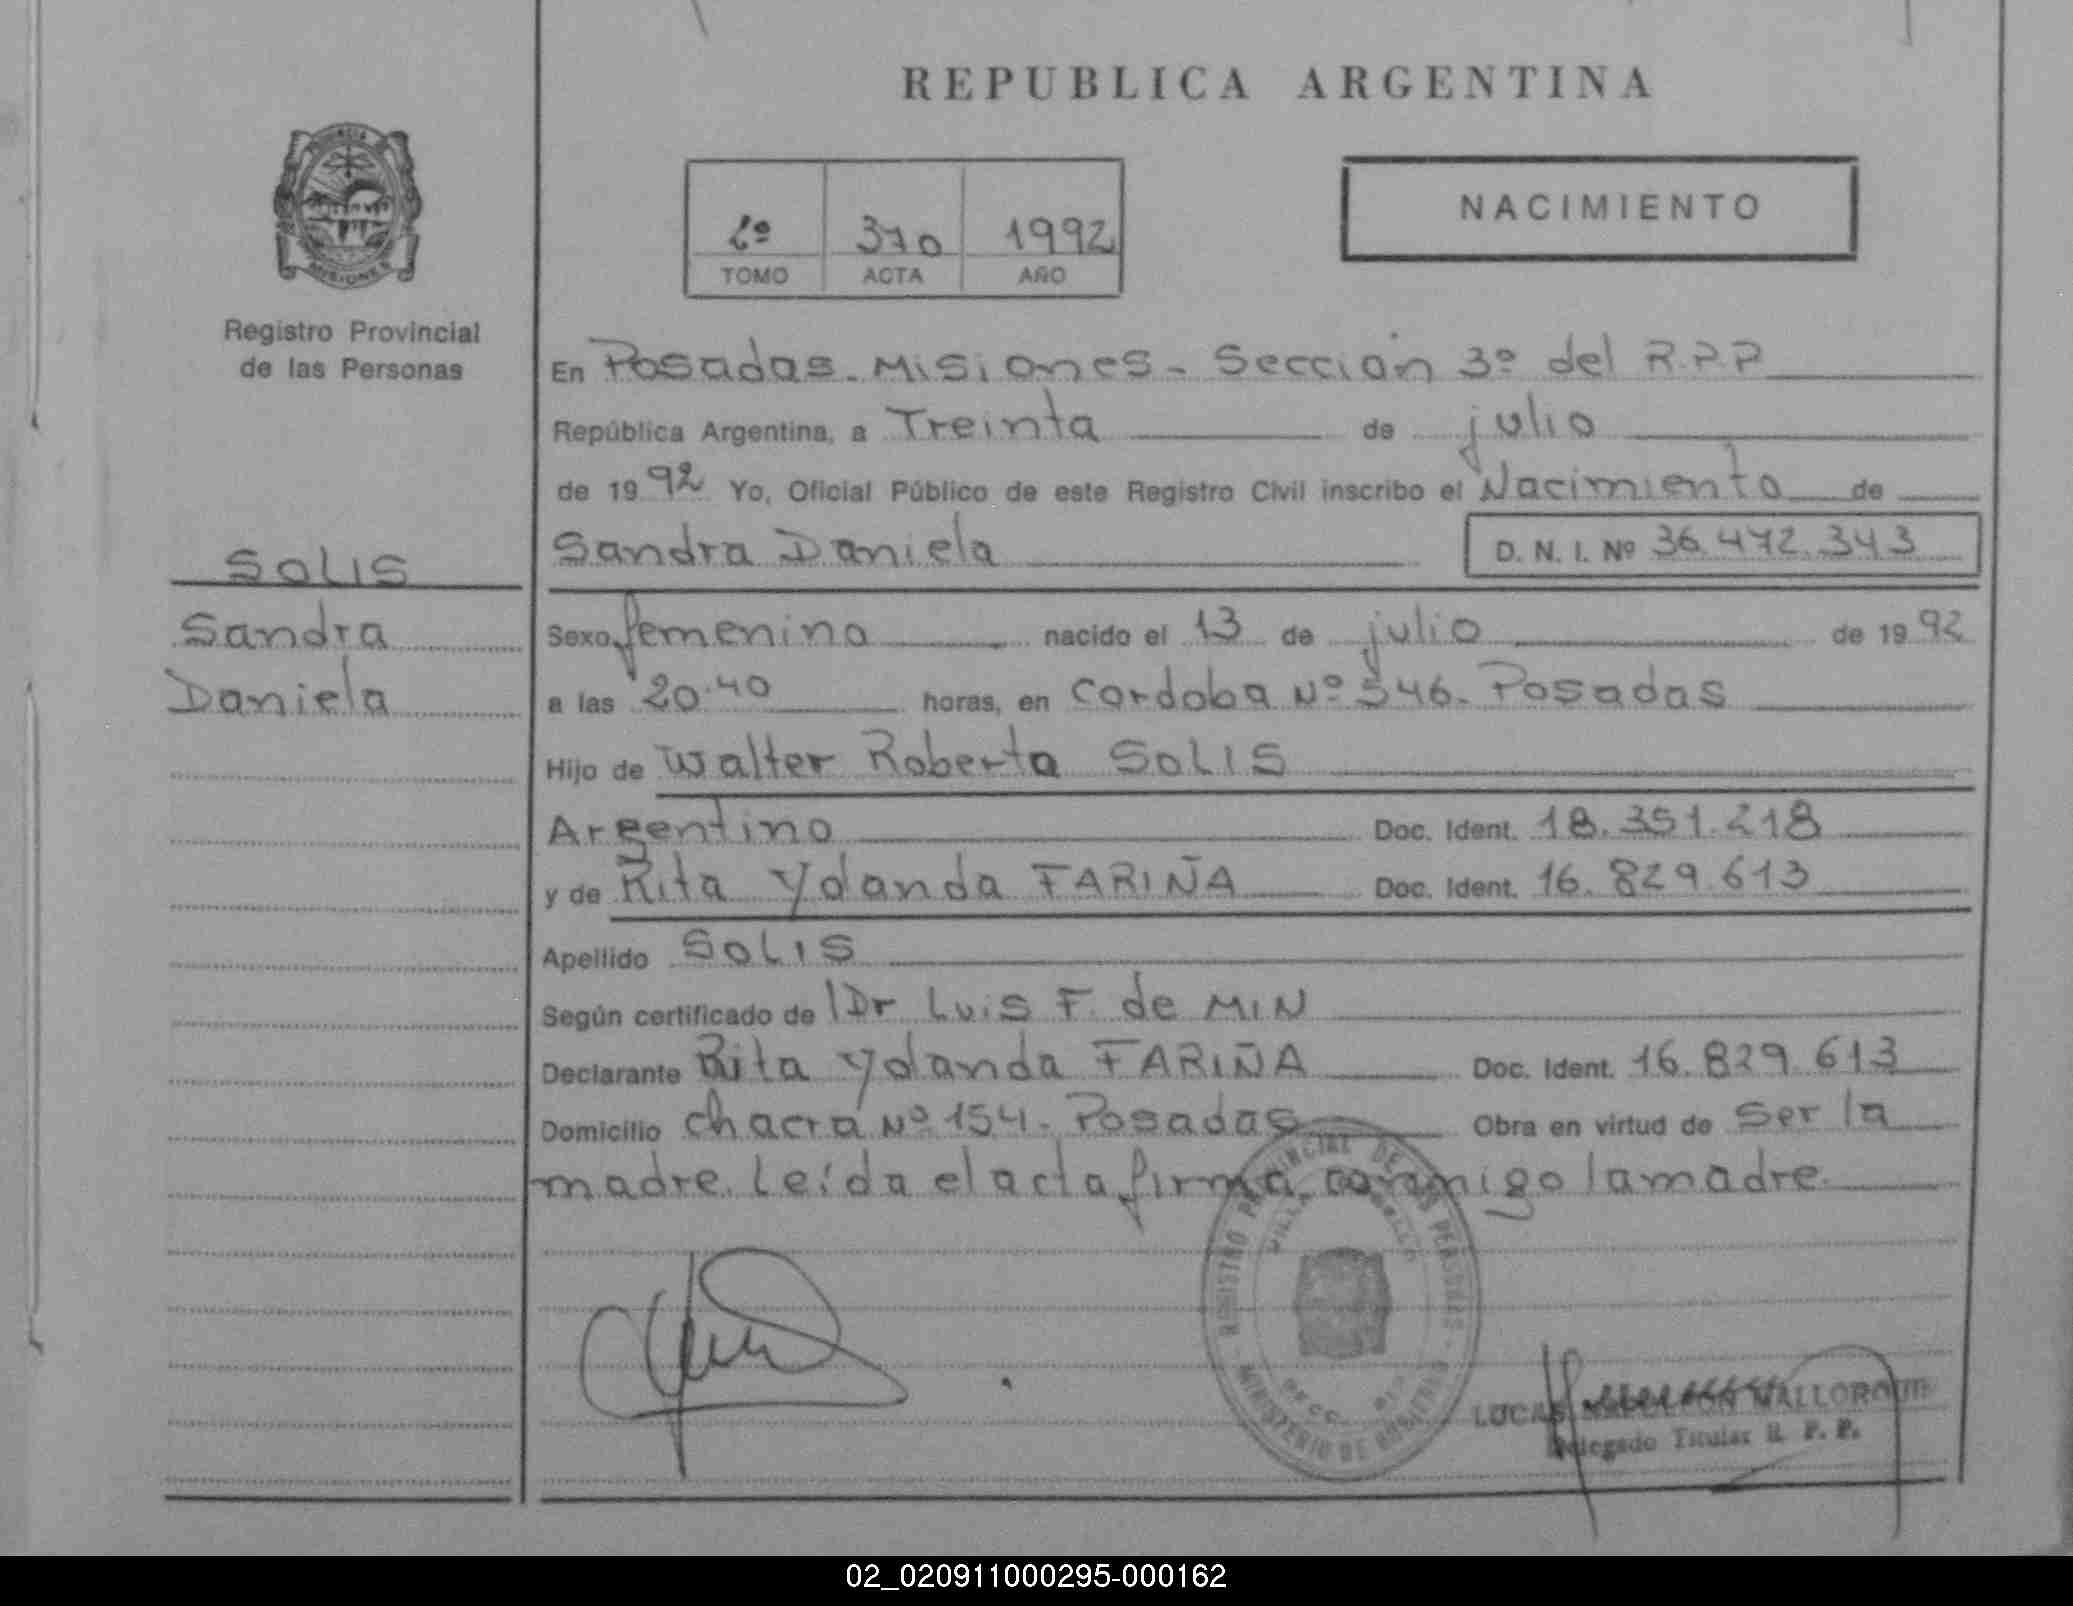 REPUBLICA ARGENTINA
NACIMIENTO
2º 370 1992
TOMO ACTA AÑO
MISIONES
Registro Provincial
de las Personas
SOLIS
Sandra
Daniela
En Posadas - Misiones - Sección 3º del R.P.P
República Argentina, a Treinta de julio
de 1992 Yo, Oficial Público de este Registro Civil inscribo el Nacimiento de
Sandra Daniela D. N. I. Nº 36.472.343
Sexo femenino nacido el 13 de julio de 1992
a las 20.40 horas, en Cordoba Nº 546 - Posadas
Hijo de Walter Roberto SOLIS
Argentino Doc. Ident. 18.351.218
y de Rita Yolanda FARIÑA Doc. Ident. 16.829.613
Apellido SOLIS
Según certificado de Dr Luis F. de MIN
Declarante Rita Yolanda FARIÑA Doc. Ident. 16.829.613
Domicilio chacra Nº 154 - Posadas Obra en virtud de ser la
madre. Leída el acta firma conmigo la madre.
REGISTRO PROVINCIAL DE LAS PERSONAS
MINISTERIO DE GOBIERNO
LUCAS NAPOLEON MALLORQUIN
Delegado Titular R. P. P.
02_020911000295-000162